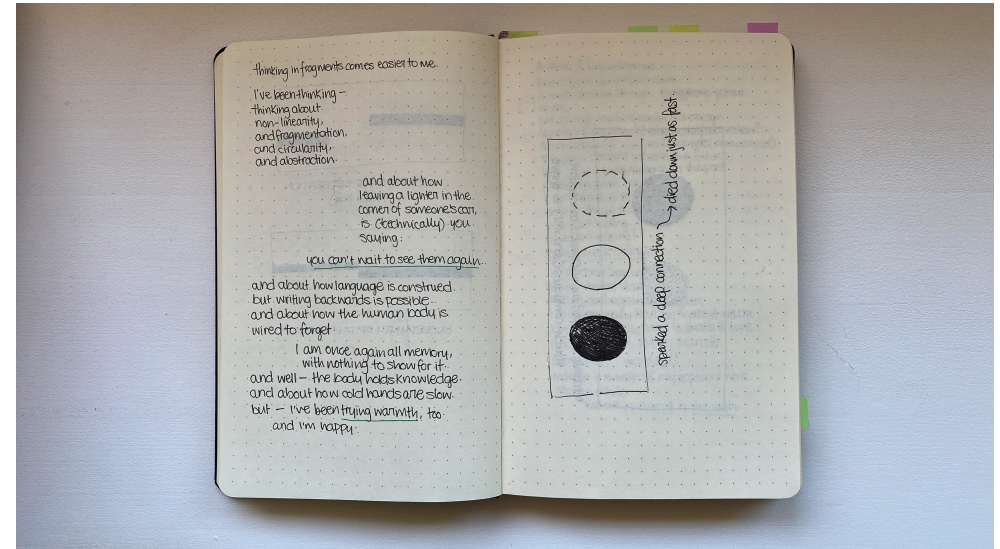 thinking in fragments comes easier to me.
I've been thinking –
thinking about
non-linearity,
and fragmentation,
and circularity,
and abstraction.
and about how
leaving a lighter in the
corner of someone's car,
is (technically) you
saying:
you can't wait to see them again.
and about how language is construed.
but writing backwards is possible.
and about how the human body is
wired to forget.
I am once again all memory,
with nothing to show for it.
and well – the body holds knowledge.
and about how cold hands are slow.
but – I've been trying warmth, too.
and I'm happy.
sparked a deep connection → died down just as fast.